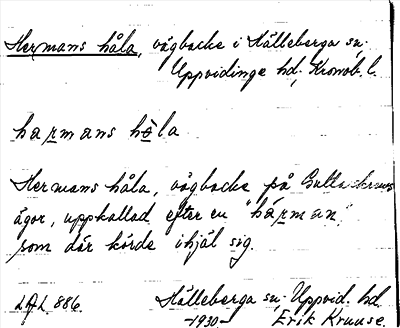 Hermans håla, vägbacke i Hälleberga sn;
Uppvidinge hd; Kronob. l.
harmans hòla
Hermans håla, vägbacke på
ägor, uppkallad efter en "härman",
som där körde ihjäl sig.
LAL 886. Hälleberga sn; Uppvid. hd.
-1930- Erik Kruuse.